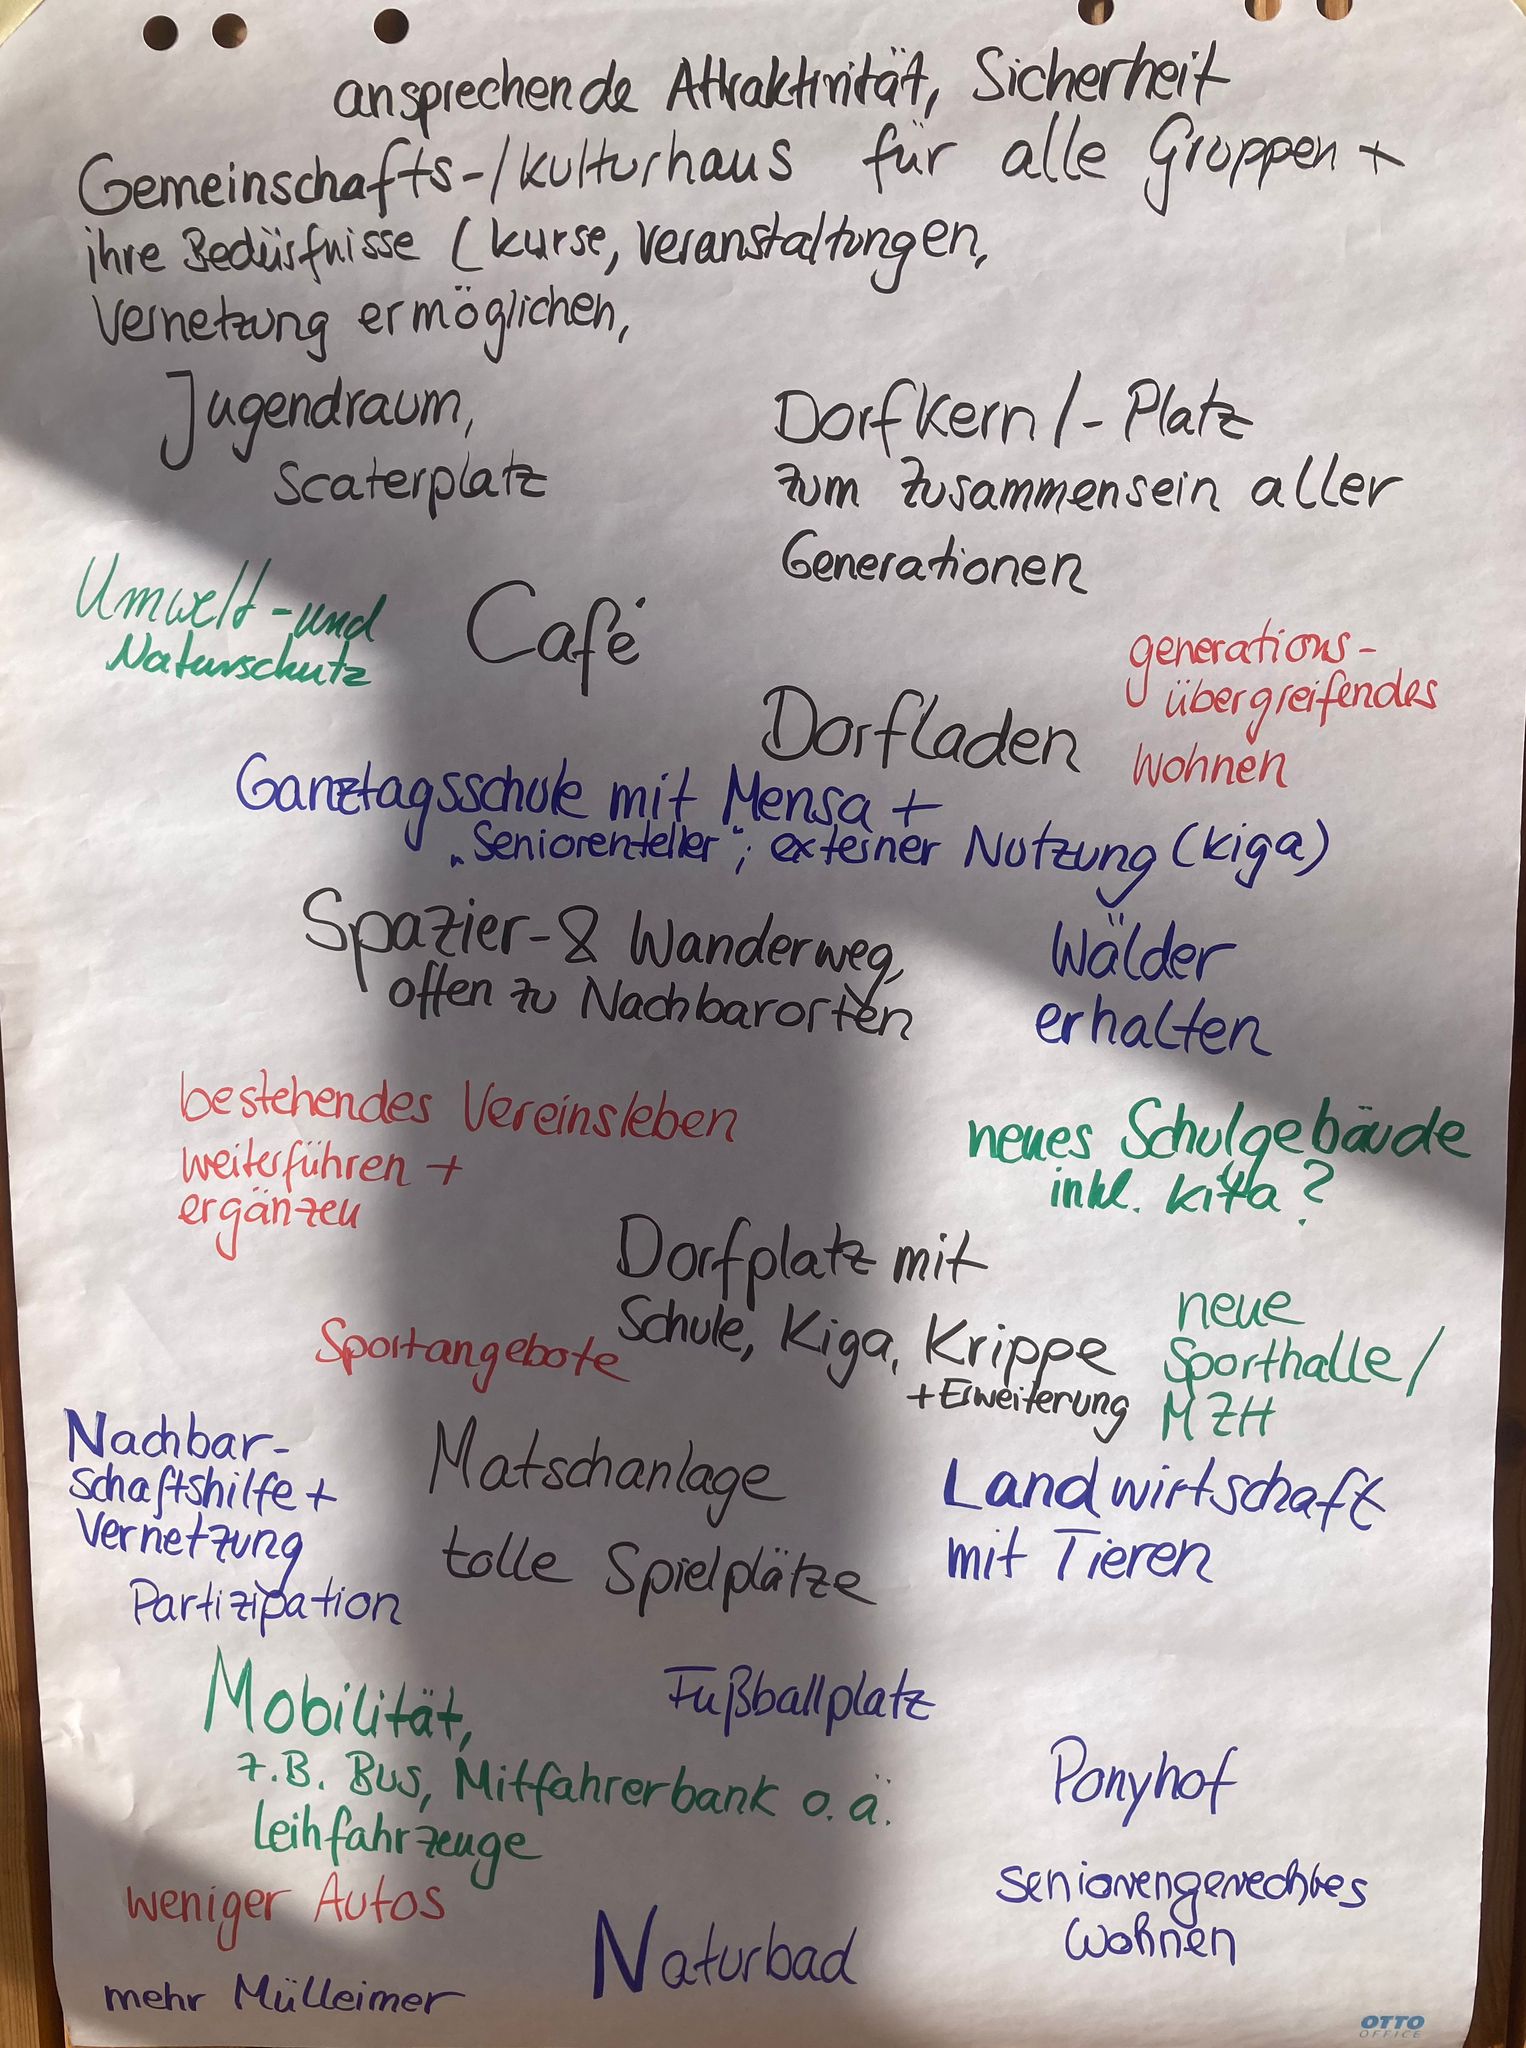 ansprechende Attraktivität, Sicherheit
Gemeinschafts-/kulturhaus für alle Gruppen +
ihre Bedürfnisse (kurse, Veranstaltungen,
Vernetzung ermöglichen,
Jugendraum,
Scaterplatz
Dorfkern/-Platz
zum Zusammensein aller
Generationen
Umwelt-und
Naturschutz
Café
generations-
übergreifendes
Wohnen
Dorfladen
Ganztagsschule mit Mensa +
„Seniorenteller“; externer Nutzung (kiga)
Spazier-& Wanderweg,
offen zu Nachbarorten
Wälder
erhalten
bestehendes Vereinsleben
weiterführen +
ergänzen
neues Schulgebäude
inkl. Kita?
Dorfplatz mit
Schule, Kiga, Krippe
+Erweiterung
neue
Sporthalle/
MZH
Sportangebote
Nachbar-
schaftshilfe+
Vernetzung
Partizipation
Matschanlage
tolle Spielplätze
Landwirtschaft
mit Tieren
Mobilität,
z.B. Bus, Mitfahrerbank o.ä.
Leihfahrzeuge
Fußballplatz
Ponyhof
weniger Autos
seniorengerechtes
Wohnen
Naturbad
mehr Mülleimer
OTTO
OFFICE